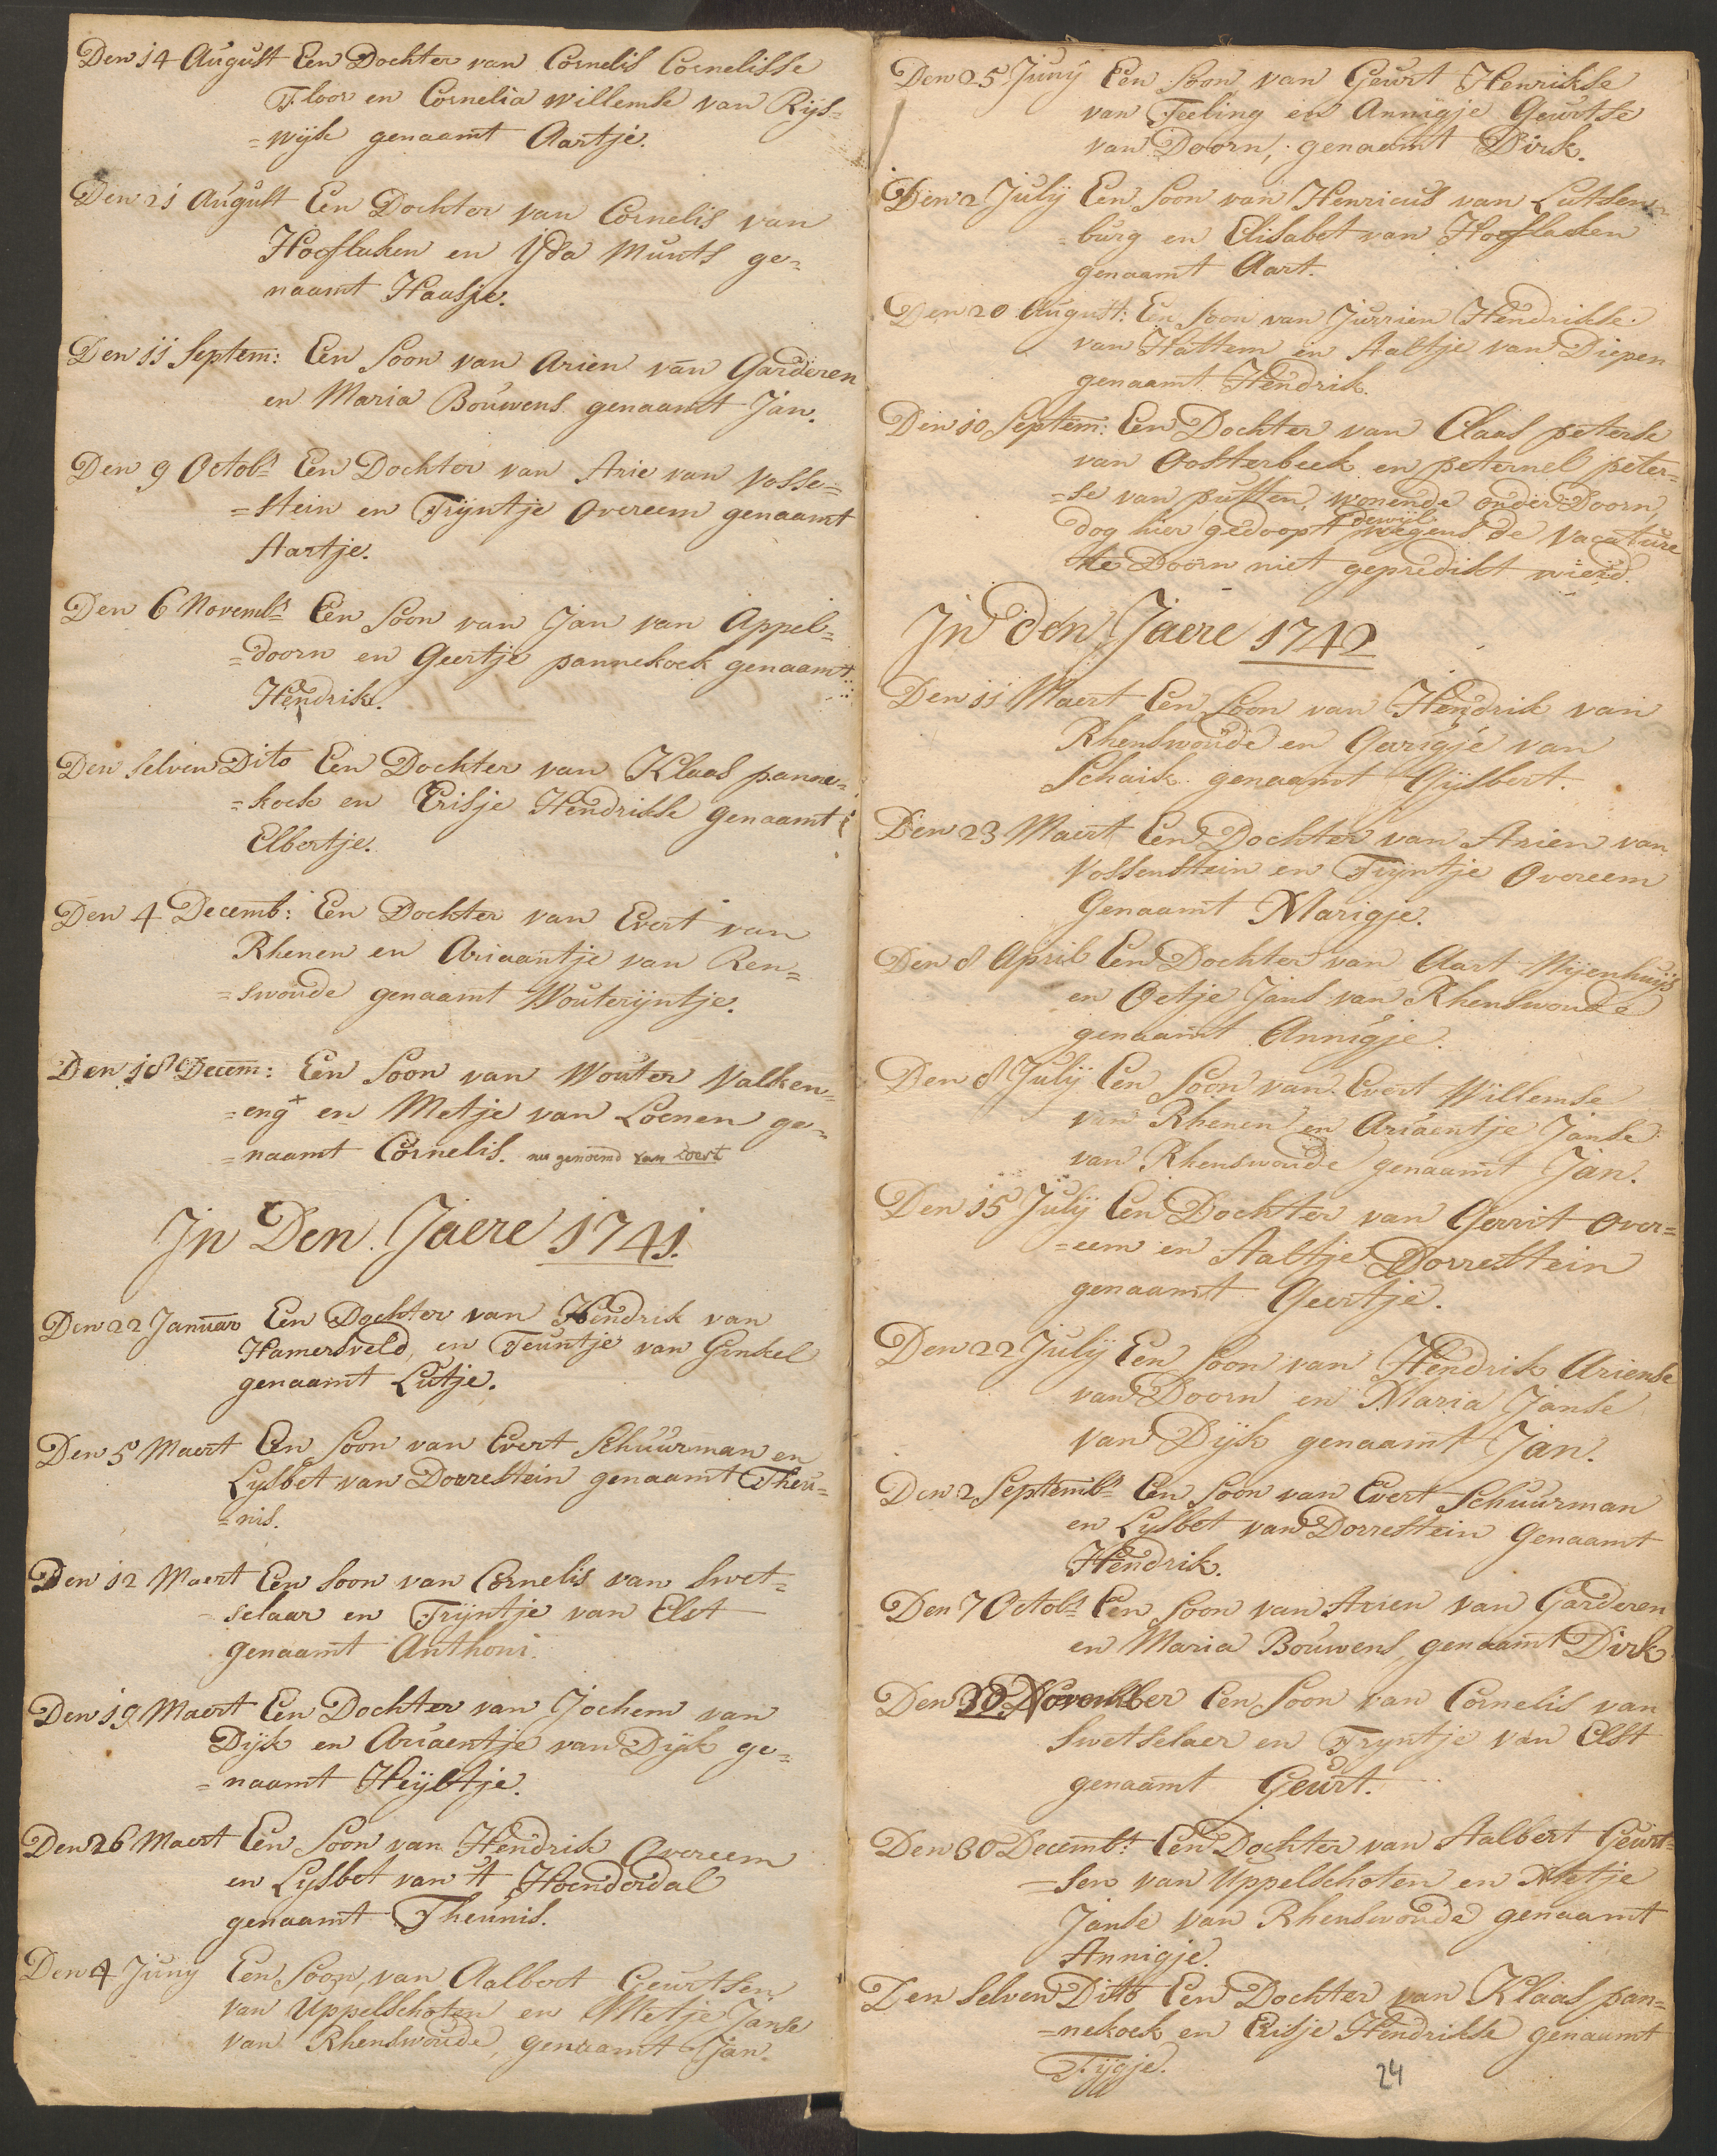 Den 14 August Een Dochter van Cornelis Cornelisse
Floor en Cornelia willemse van Rijs=
=wijk genaamt Aartje.
Den 21 August Een Dochter van Cornelis van
Hoeflaken en Yda Munts ge=
naamt Haasje.
Den 11 Septem: Een Soon van Arien van Garderen
en Maria Bouwens genaamt Jan.
Den 9 Octobr Een Dochter van Arie van Vosse=
=stein en Trijntje Overeem genaamt
Aartje.
Den 6 Novembr Een Soon van Jan van Appel=
=doorn en Geertje pannekoek genaamt
Hendrik.
Den selven Dito Een Dochter van Klaas panne=
=koek en Crisje Hendrikse genaamt
Elbertje.
Den 4 Decemb: Een Dochter van Evert van
Rhenen en Ariaantje van Ren=
=swoude genaamt Wouterijntje.
Den 18 Decem: Een Soon van Wouter Valken=
=eng en Metje van Loenen ge=
=naamt Cornelis. nu genoemd van Voert
In Den Jaere 1741.
Den 22 Januar Een Dochter van Hendrik van
Hamersveld, en Teuntje van Ginkel
genaamt Lutje.
Den 5 Maert Een Soon van Evert Schuurman en
Lysbet van Dorrestein genaamt Theu=
=nis.
Den 12 Maert Een Soon van Cornelis van Swet=
=selaar en Trijntje van Elst
genaamt Anthoni.
Den 19 Maert Een Dochter van Jochem van
Dijk en Ariaentje van Dijk ge=
=naamt Heijltje.
Den 26 Maert Een Soon van Hendrik Overeem
en Lysbet van 't Hoenderdal
genaamt Theunis.
Den 4 Juny Een Soon, van Aalbert Geurtsen
van Uppelschoten en Metje Janse
van Rhenswoude, genaamt Jan.
Den 25 Juny Een Soon van Geurt Henrikse
van Teeling en Annigje Geurtse
van Doorn, genaamt Dirk.
Den 2 July Een Soon van Henricus van Lutsen=
=burg en Elisabet van Hoeflaken
genaamt Aart.
Den 20 August: Een Soon van Jurrien Hendrikse
van Hattem en Aaltje van Diepen
genaamt Hendrik.
Den 10 Septem: Een Dochter van Claas peterse
van Oosterbeek en peternel peter=
=se van putten, wonende onder Doorn,
dewijl
dog hier gedoopt wegens de vacature
te Doorn niet gepredikt wierd.
In den Jaere 1742
Den 11 Maert Een Soon van Hendrik van
Rhenswoude en Gerrigje van
Schaik genaamt Gijsbert.
Den 23 Maert Een Dochter van Arien van
Vossenstein en Trijntje Overeem
Genaamt Marigje.
Den 8 April Een Dochter van Aart Nijenhuijs
en Oetje Jans van Rhenswoude
genaamt Annigje.
Den 8 July Een Soon van Evert Willemse
van Rhenen en Ariaentje Janse
van Rhenswoude genaamt Jan.
Den 15 July Een Dochter van Gerrit Over=
=eem en Aaltje Dorrestein
genaamt Geertje.
Den 22 July Een Soon van Hendrik Ariense
van Doorn en Maria Janse
van Dijk genaamt Jan.
Den 2 Septembr Een Soon van Evert Schuurman
en Lysbet van Dorrestein Genaamt
Hendrik.
Den 7 Octobr Een Soon van Arien van Garderen
en Maria Bouwens, genaamt Dirk
Den 30 November Een Soon van Cornelis van
Swetselaer en Tryntje van Elst
genaamt Geurt.
Den 30 Decembr Een Dochter van Aalbert Geurt=
=sen van Uppelschoten en Metje
Janse van Rhenswoude genaamt
Annigje.
Den Selven Dito Een Dochter van Klaas pan=
=nekoek en Crisje Hendrikse genaamt
Tijgje.
24